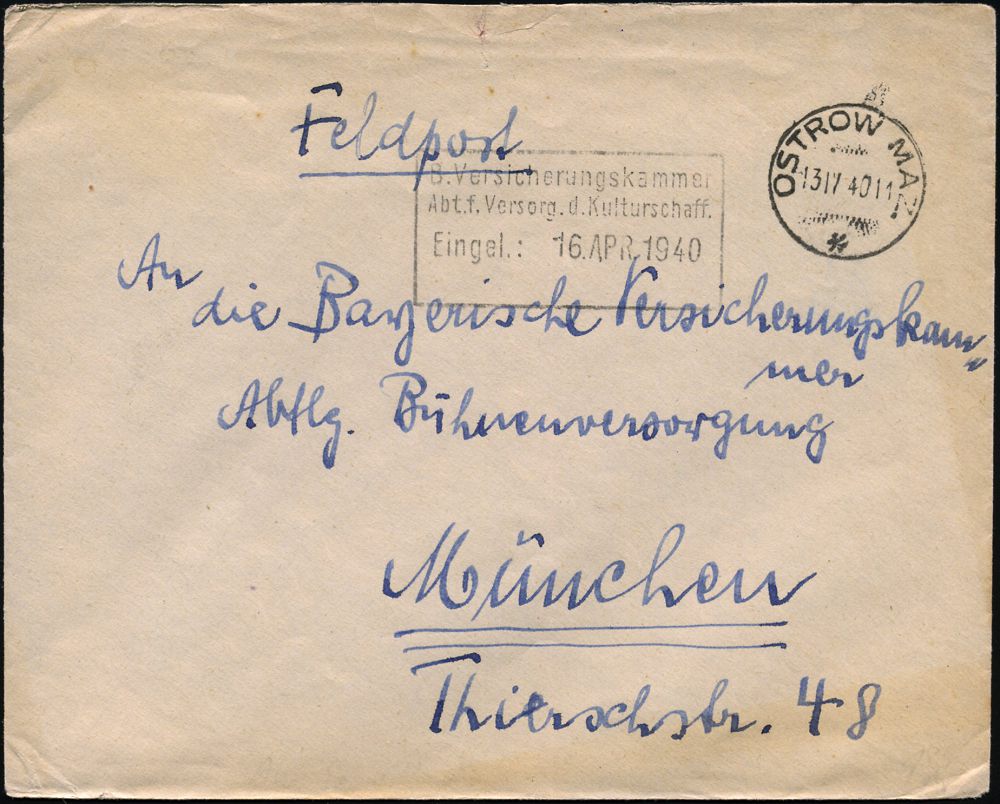 Feldpost
OSTROW MAZ.
13 IV 40 11
B. Versicherungskammer
Abt. f. Versorg. d. Kulturschaff.
Eingel.: 16. APR. 1940
An
die Bayerische Versicherungskam„
mer
Abtlg. Bühnenversorgung
München
Thierschstr. 48